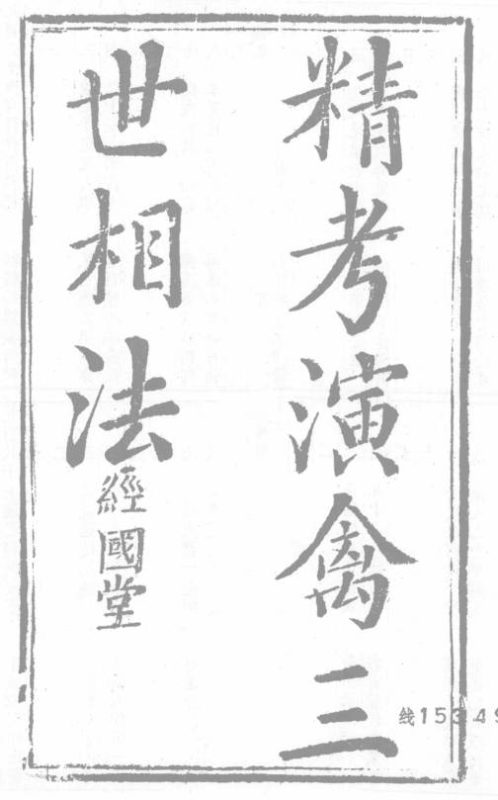 精考演禽三
世相法
經國堂
线15349